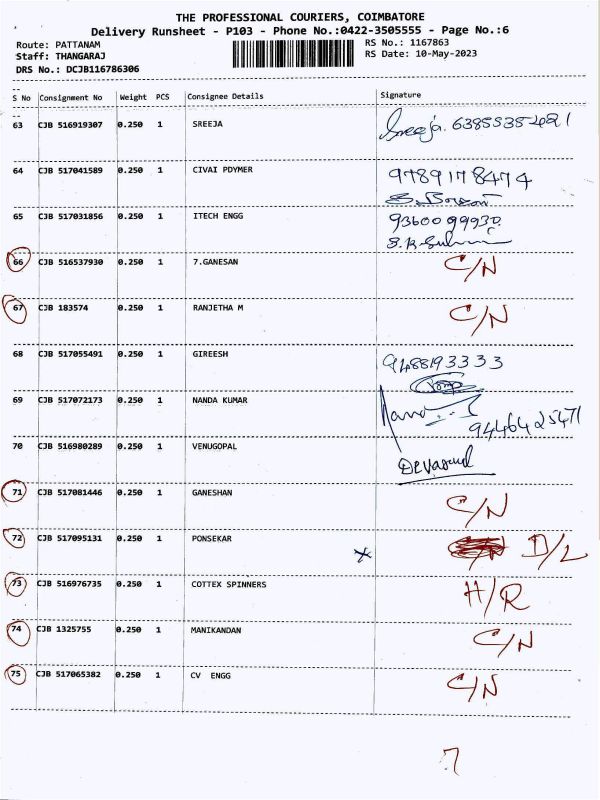 THE PROFESSIONAL COURIERS, COIMBATORE
Delivery Runsheet - P103 - Phone No.:0422-3505555 - Page No.:6
Route: PATTANAM
RS No.: 1167863
Staff: THANGARAJ
RS Date: 10-May-2023
DRS No.: DCJB116786306
--
S No Consignment No Weight PCS Consignee Details Signature
--
63 CJB 516919307 0.250 1 SREEJA Sreeja. 6385535421
64 CJB 517041589 0.250 1 CIVAI PDYMER 9789178474
65 CJB 517031856 0.250 1 ITECH ENGG 9360099930
66 CJB 516537930 0.250 1 7.GANESAN C/N
67 CJB 183574 0.250 1 RANJETHA M C/N
68 CJB 517055491 0.250 1 GIREESH 9488193333
69 CJB 517072173 0.250 1 NANDA KUMAR 9446425471
70 CJB 516980289 0.250 1 VENUGOPAL
71 CJB 517081446 0.250 1 GANESHAN C/N
72 CJB 517095131 0.250 1 PONSEKAR x D/L
73 CJB 516976735 0.250 1 COTTEX SPINNERS H/R
74 CJB 1325755 0.250 1 MANIKANDAN C/N
75 CJB 517065382 0.250 1 CV ENGG C/N
7